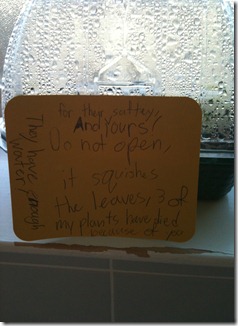 for their saftey,
And yours!
Do not open,
it squishs
the leaves, 3 of
my plants have died
because of
They have enough
water,